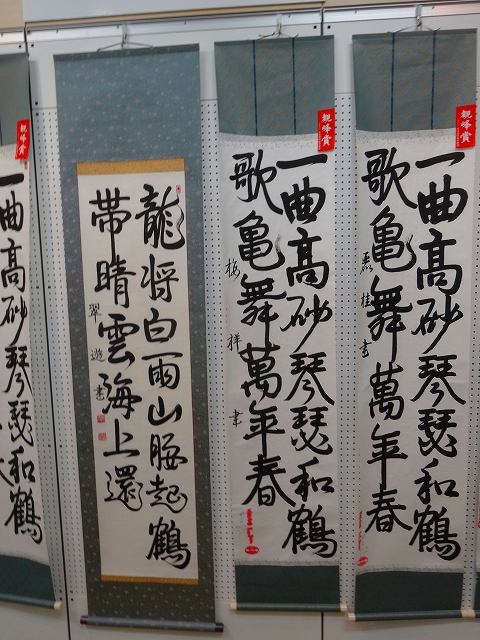 親峰賞
一曲高砂琴瑟和鶴
歌亀舞萬年春
桂書
親峰賞
一曲高砂琴瑟和鶴
歌亀舞萬年春
梅祥書
龍将白雨山腰起鶴
帯晴雲海上還
翠遊書
親峰賞
一曲高砂琴瑟和鶴